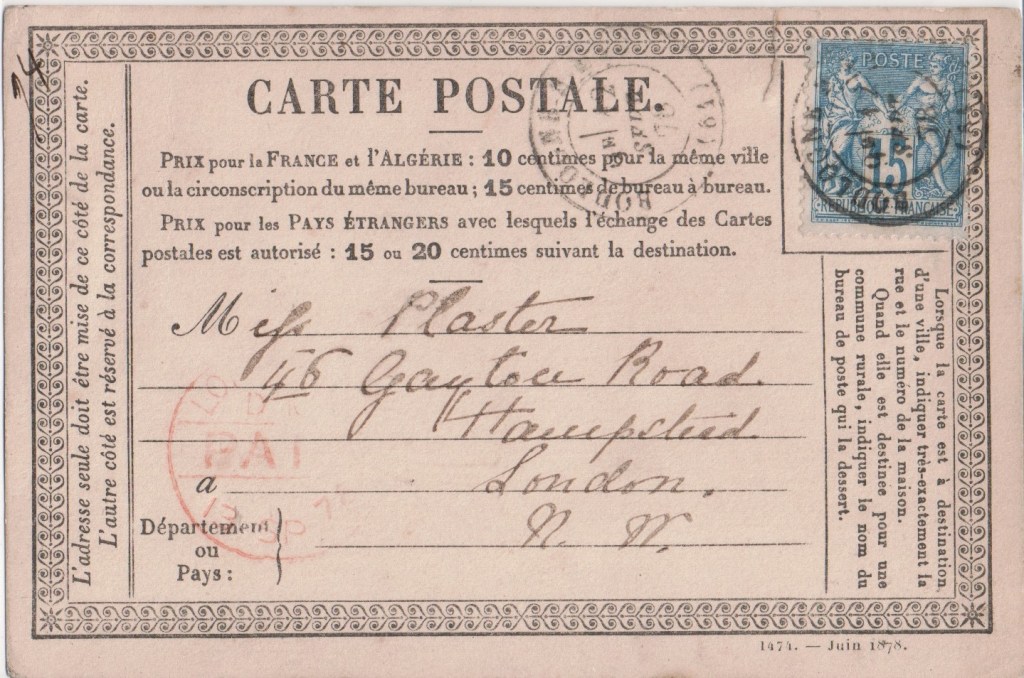 24
CARTE POSTALE.
PRIX pour la FRANCE et l'ALGÉRIE : 10 centimes pour la même ville
ou la circonscription du même bureau ; 15 centimes de bureau à bureau.
PRIX pour les PAYS ÉTRANGERS avec lesquels l'échange des Cartes
postales est autorisé : 15 ou 20 centimes suivant la destination.
POSTE
15
REPUBLIQUE FRANÇAISE
L'adresse seule doit être mise de ce côté de la carte.
L'autre côté est réservé à la correspondance.
Miss Plaster
46 Gayton Road.
Hampstead
a London.
N. W.
Département
ou
Pays :
PAI
SP
Lorsque la carte est à destination
d'une ville, indiquer très-exactement la
rue et le numéro de la maison.
Quand elle est destinée pour une
commune rurale, indiquer le nom du
bureau de poste qui la dessert.
1474. — Juin 1878.